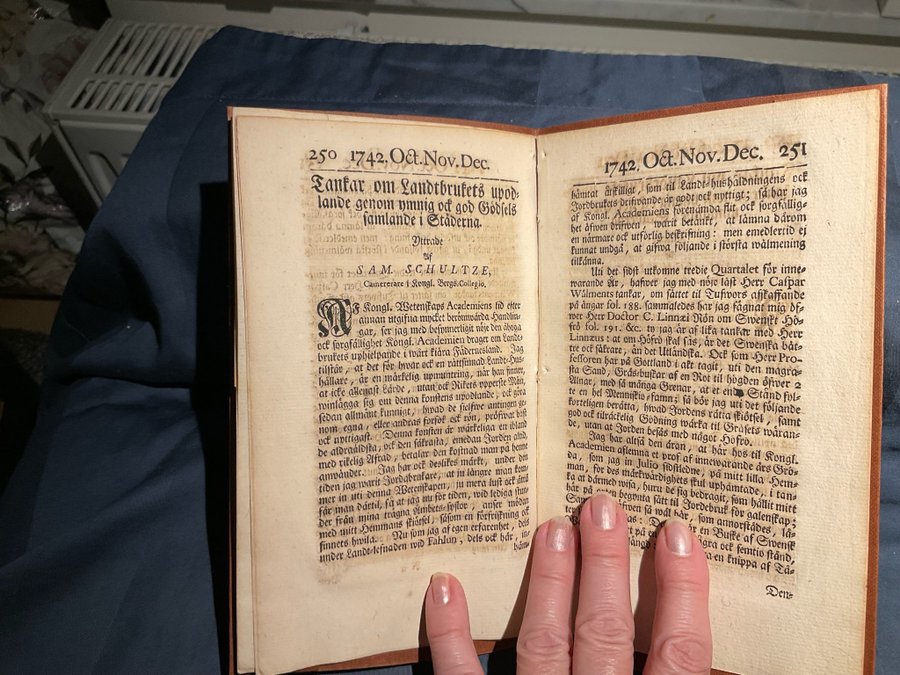 250 1742. Oct. Nov. Dec.
Tankar om Landtbrukets upod-
lande genom ymnig ock god Gödsels
samlande i Städerna.
Yttrade
Af
SAM. SCHULTZE,
Camererare i Kongl. Bergs-Collegio.
AF Kongl. Wetenskaps Academiens tid efter
annan utgifna mycket berömwärda Handlin-
gar, ser jag med besynnerligit nöje den åhoga
ock sorgfällighet Kongl. Academien drager om Landt-
brukets uphielpande i wårt kiära Fädernesland. Jag
tilstår, at det för hwar ock en rättsinnad Landt-Hus-
hållare, är en märkelig upmuntring, när han finner,
at icke allenast Lärde, utan ock Rikets ypperste Män,
winlägga sig om denna konstens upodlande, ock göra
sedan allmänt kunnigt, hwad de sielfwe antingen ge-
nom egna, eller andras försök ock rön, pröfwat bäst
ock nyttigast. Denna konsten är märkeliga en ibland
de aldraäldsta, ock den säkrasta, emedan Jorden altid,
med rikelig Afrad, betalar den kostnad man på henne
använder. Jag har ock desslikes märkt, under den
tiden jag warit Jordabrukare, at ju längre man kom-
mer in uti denna Wetenskapen, ju mera lust ock ämne
får man därtil, så at jag nu för tiden, wid lediga stun-
der från mina trägna Ämbets-sysslor, anser mödan
med mitt Hemmans skiötsel, såsom en förfriskning ock
sinnets hwila. Nu som jag af egen erfarenhet, dels
under Landt-lefnaden wid Fahlun, dels ock här, in-
häm-
1742. Oct. Nov. Dec. 251
hämtat åtskilligt, som til Landt-hushåldningens ock
Jordbrukets drifwande är godt ock nyttigt; så har jag
af Kongl. Academiens förenämda flit ock sorgfällig-
het äfwen drifwen, warit betänkt, at lämna därom
en närmare ock utförlig beskrifning: men emedlertid ej
kunnat undgå, at gifwa följande i största wälmening
tilkänna.
Uti det sidst utkomne tredie Quartalet för inne-
warande År, hafwer jag med nöje läst Herr Caspar
Wälments tankar, om sättet til Tufwors afskaffande
på ängar fol. 188. sammaledes har jag fägnat mig öf-
wer Herr Doctor C. Linnæi Rön om Swenskt Hö-
frö fol. 191. &c. ty jag är af lika tankar med Herr
Linnæus: at om Höfrö skal sås, är det Swenska bät-
tre ock säkrare, än det Utländska. Ock som Herr Pro-
fessoren har på Gottland i akt tagit, uti den magra-
sta Sand, Gräs-buskar af en Ret til högden öfwer 2
Alnar, med så många Grenar, at et enda Stånd fol-
te en hel Menniskio-famn; så bör jag uti det följande
korteligen berätta, hwad Jordens rätta skiötsel, samt
god ock tilräckelig Gödning wärka til Gräsets wäran-
de, utan at Jorden besås med något Höfrö.
Jag har altså den äran, at här hos til Kongl.
Academien aflemna et prof af innewarande års Grö-
da, som jag in Julio sidstledne, på mitt lilla Hem-
man, för des märkwärdighets skul uphämtade, i tan-
ka at därmed wisa, huru de sig bedragit, som hållit mitt
här på orten begynta sätt til Jordebruk för galenskap;
som annorstädes, lä-
är en Buske af Swensk
ock femtio stånd,
en knippa af Tå-
Den-